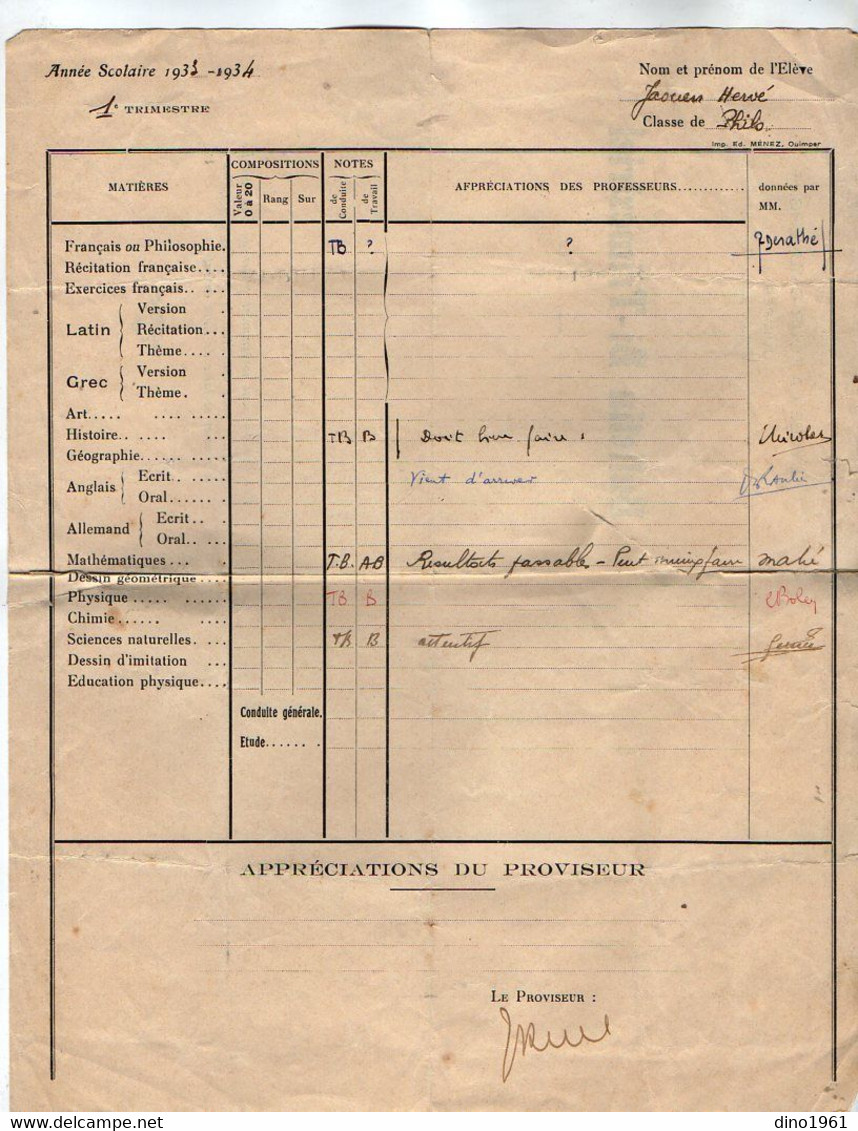 Année Scolaire 1933-1934
Nom et prénom de l'Elève
1e TRIMESTRE
Jaouen Hervé
Classe de Philo
Imp. Ed. MÉNEZ, Quimper
MATIÈRES
COMPOSITIONS
NOTES
Valeur 0 à 20
Rang
Sur
de Conduite
de Travail
APPRÉCIATIONS DES PROFESSEURS............
données par MM.
Français ou Philosophie. TB ? ? Derathé
Récitation française....
Exercices français.. ...
Latin
Version .
Récitation...
Thème.... .
Grec
Version .
Thème. .
Art..... .... .....
Histoire.. .... ... TB B Doit bien faire. Nicolas
Géographie...... .....
Anglais
Ecrit.. .....
Oral...... .
Vient d'arriver
Allemand
Ecrit.. .
Oral.. ...
Mathématiques... . T.B. AB Résultats passables - Peut mieux faire Mahé
Dessin géométrique....
Physique ..... ...... TB B
Chimie...... ....
Sciences naturelles. ... TB B attentif
Dessin d'imitation ...
Education physique....
Conduite générale.
Etude...... .
APPRÉCIATIONS DU PROVISEUR
LE PROVISEUR :
dino1961